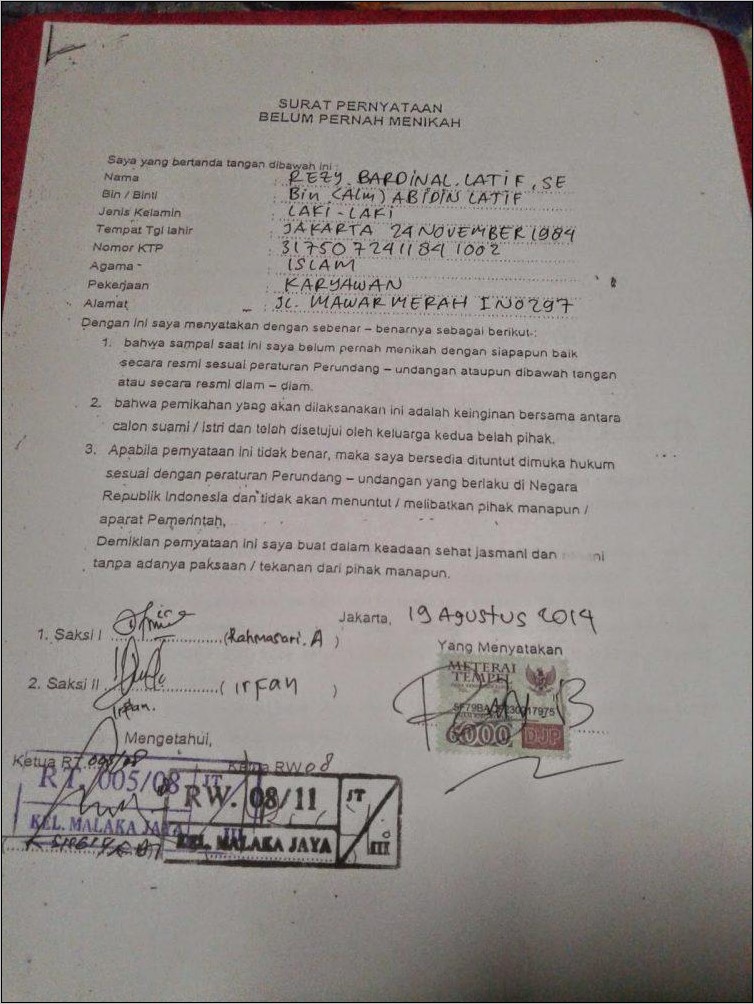 SURAT PERNYATAAN
BELUM PERNAH MENIKAH
Saya yang bertanda tangan dibawah ini :
Nama : REZY. BARDINAL. LATIF, SE
Bin / Binti : Bin (Alm) ABIDIN LATIF
Jenis Kelamin : LAKI - LAKI
Tempat Tgl lahir : JAKARTA 24 NOVEMBER 1984
Nomor KTP : 3175072411841002
Agama : ISLAM
Pekerjaan : KARYAWAN
Alamat : JL. MAWAR MERAH I NO 297
Dengan ini saya menyatakan dengan sebenar – benarnya sebagai berikut :
1. bahwa sampai saat ini saya belum pernah menikah dengan siapapun baik
secara resmi sesuai peraturan Perundang – undangan ataupun dibawah tangan
atau secara resmi diam – diam.
2. bahwa pernikahan yang akan dilaksanakan ini adalah keinginan bersama antara
calon suami / istri dan telah disetujui oleh keluarga kedua belah pihak.
3. Apabila pernyataan ini tidak benar, maka saya bersedia dituntut dimuka hukum
sesuai dengan peraturan Perundang – undangan yang berlaku di Negara
Republik Indonesia dan tidak akan menuntut / melibatkan pihak manapun /
aparat Pemerintah,
Demikian pernyataan ini saya buat dalam keadaan sehat jasmani dan
tanpa adanya paksaan / tekanan dari pihak manapun.
Jakarta, 19 Agustus 2014
1. Saksi I (Rahmasari. A )
Yang Menyatakan
METERAI
TEMPEL
6000 DJP
2. Saksi II ( irfan )
irfan.
Mengetahui,
Ketua RT 005/08 Ketua RW 08
RT. 005/08 JT
KEL. MALAKA JAYA III
RW. 08/11 JT
KEL. MALAKA JAYA III